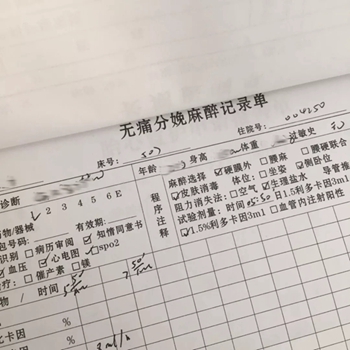 无痛分娩麻醉记录单
床号: 507 住院号: 004250
诊断 年龄 身高 体重 过敏史 无
1 2 3 4 5 6 E
药物/器械 有效期:
包号码:
识别 □病历审阅 ☑知情同意书
☑血压 ☑心电图 □spo2
治疗: □催产素 □镁
物 / 时间
卡因 %
%
程序注释
麻醉选择 ☑硬膜外 □腰麻 □腰硬联合
☑皮肤消毒 体位: □坐姿 ☑侧卧位
阻力消失法: □空气 ☑生理盐水 导管
试验剂量: 时间 05:50 日1.5利多卡因3ml
☑1.5%利多卡因3ml □血管内注射阳性